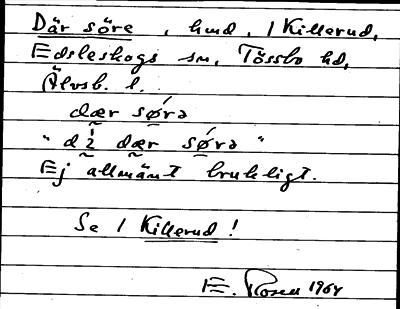 Där söre, hmd, 1 Killerud,
Edsleskogs sn, Tössbo hd,
Älvsb. l.
dær sørə
" dæ̀r sørə "
Ej allmänt brukligt.
Se 1 Killerud!
E. Rosell 1964